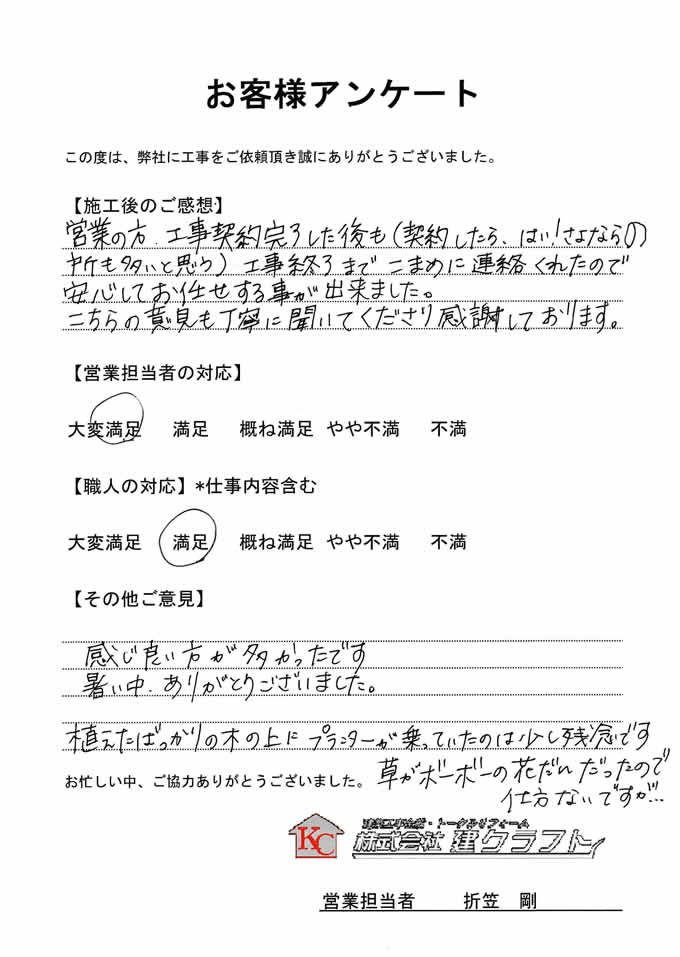 お客様アンケート
この度は、弊社に工事をご依頼頂き誠にありがとうございました。
【施工後のご感想】
営業の方、工事契約完了した後も(契約したら、はい!さよならの
所も多いと思う)工事終了までこまめに連絡くれたので
安心してお任せする事が出来ました。
こちらの意見も丁寧に聞いてくださり感謝しております。
【営業担当者の対応】
大変満足 満足 概ね満足 やや不満 不満
【職人の対応】*仕事内容含む
大変満足 満足 概ね満足 やや不満 不満
【その他ご意見】
感じ良い方が多かったです
暑い中、ありがとうございました。
植えたばっかりの木の上にプランターが乗っていたのは少し残念です
お忙しい中、ご協力ありがとうございました。
草がボーボーの花だんだったので
仕方ないですが…
KC
建築工事全般・トータルリフォーム
株式会社 建クラフト
営業担当者 折笠 剛